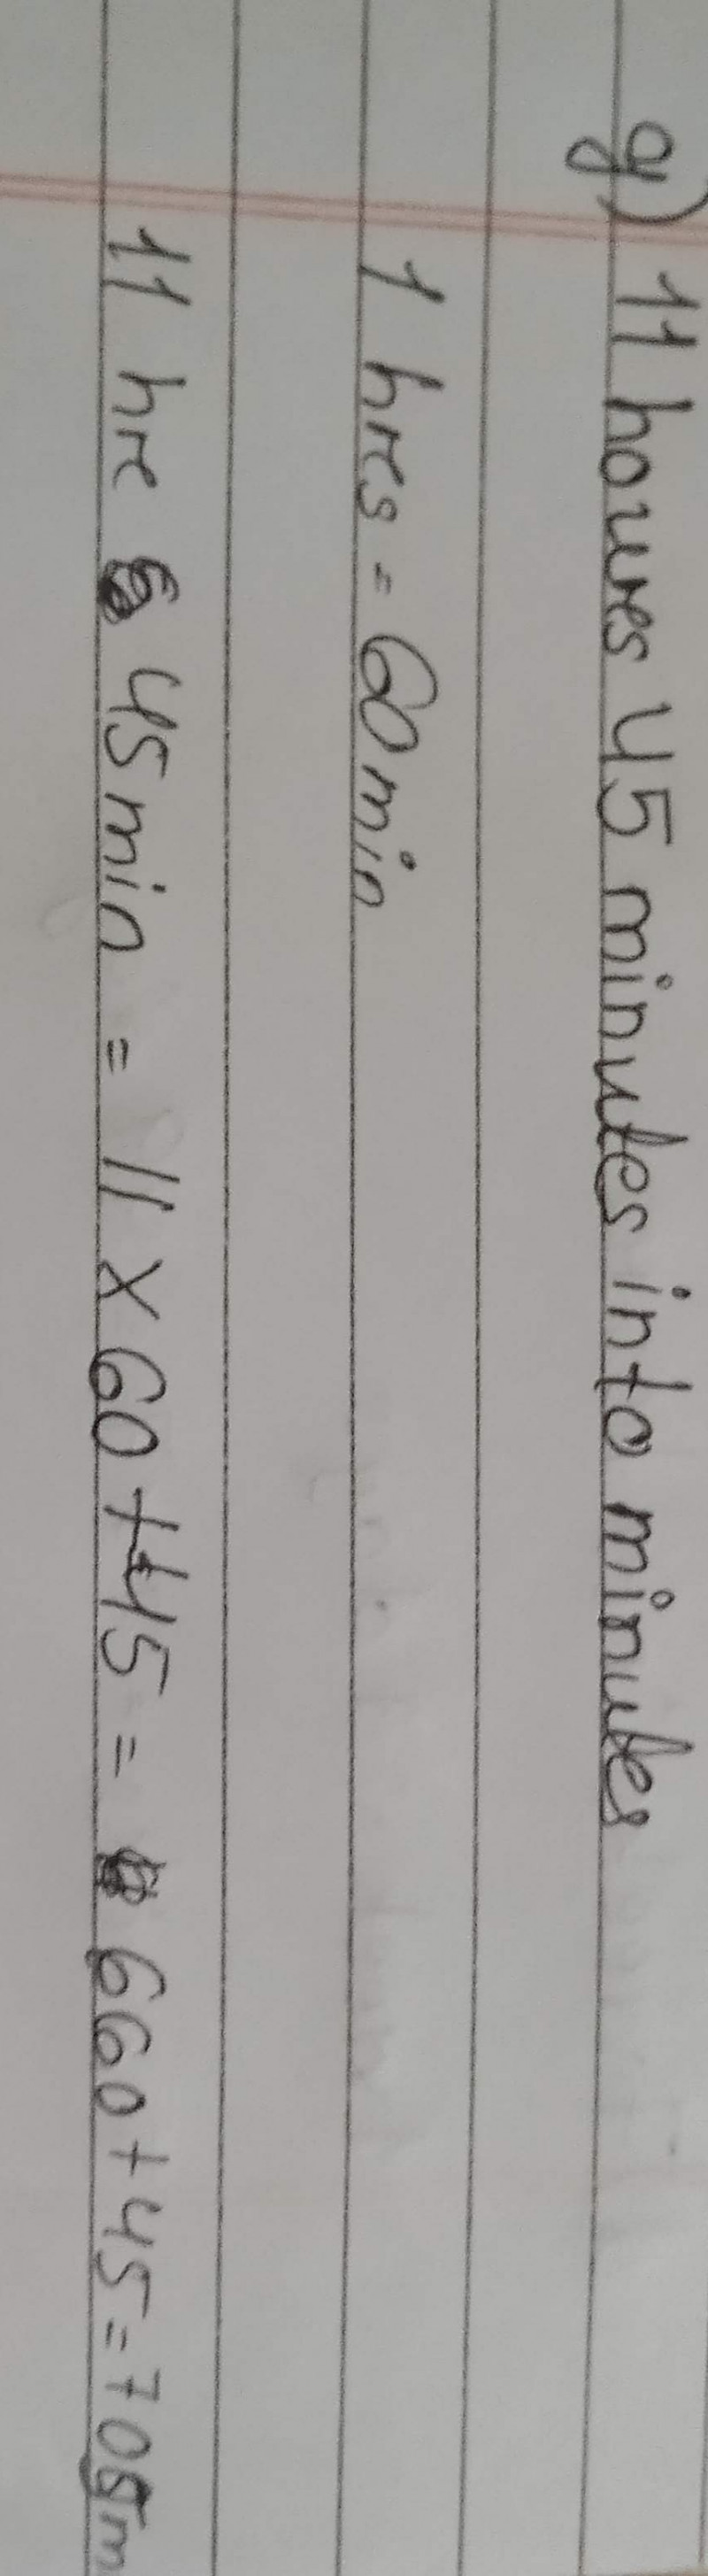 g) 11 hours 45 minutes into minutes
1 hrs = 60 min
11 hr 45 min = 11 x 60 + 45 = 660 + 45 = 705m